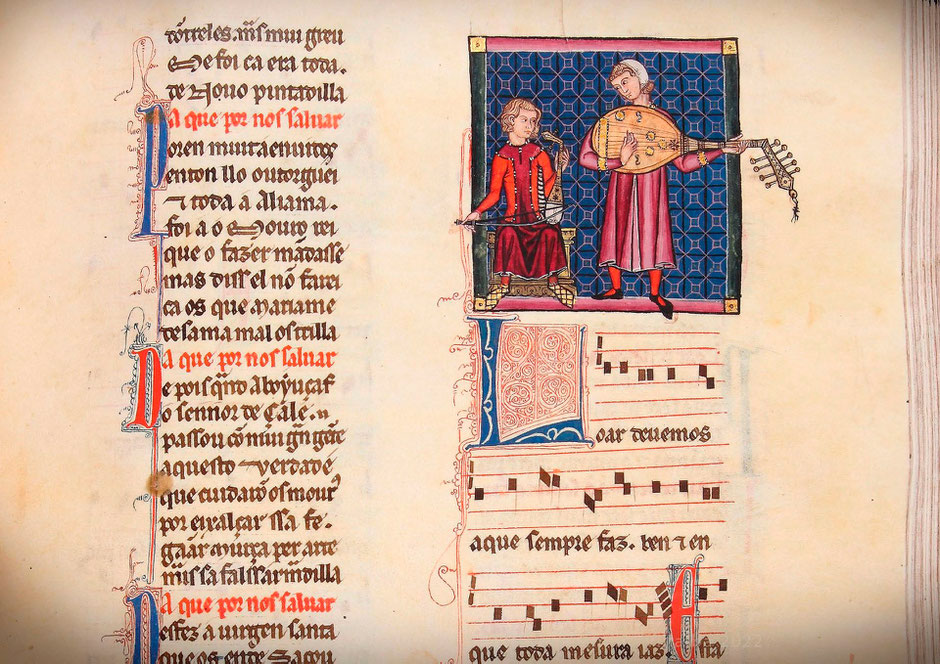 mui greu
lle foi ca era toda.
de Nouo pintadilla
A que por nos saluar
Poren
penton llo outorguei
⁊ toda a Aliama.
foi a o Mouro rei
que o fazer mãdasse
mas diss el nõ farei
ca os que Mariame
desama mal os trilla
A que por nos saluar
De pois qñdo Aboyuçaf
o sennor de Çalé.
passou cõ mui gñ gente
aquesto uerdade
que cuidarõ os mour⁹
por eixalçar ssa fe.
gãar Murça per arte
mais sa falssarmadilla
A que por nos saluar
Desfez a uirgen santa
que os ende Sacou
Loar deuemos
aque sempre faz. ben ⁊ en
que toda mesura iaz. Esta